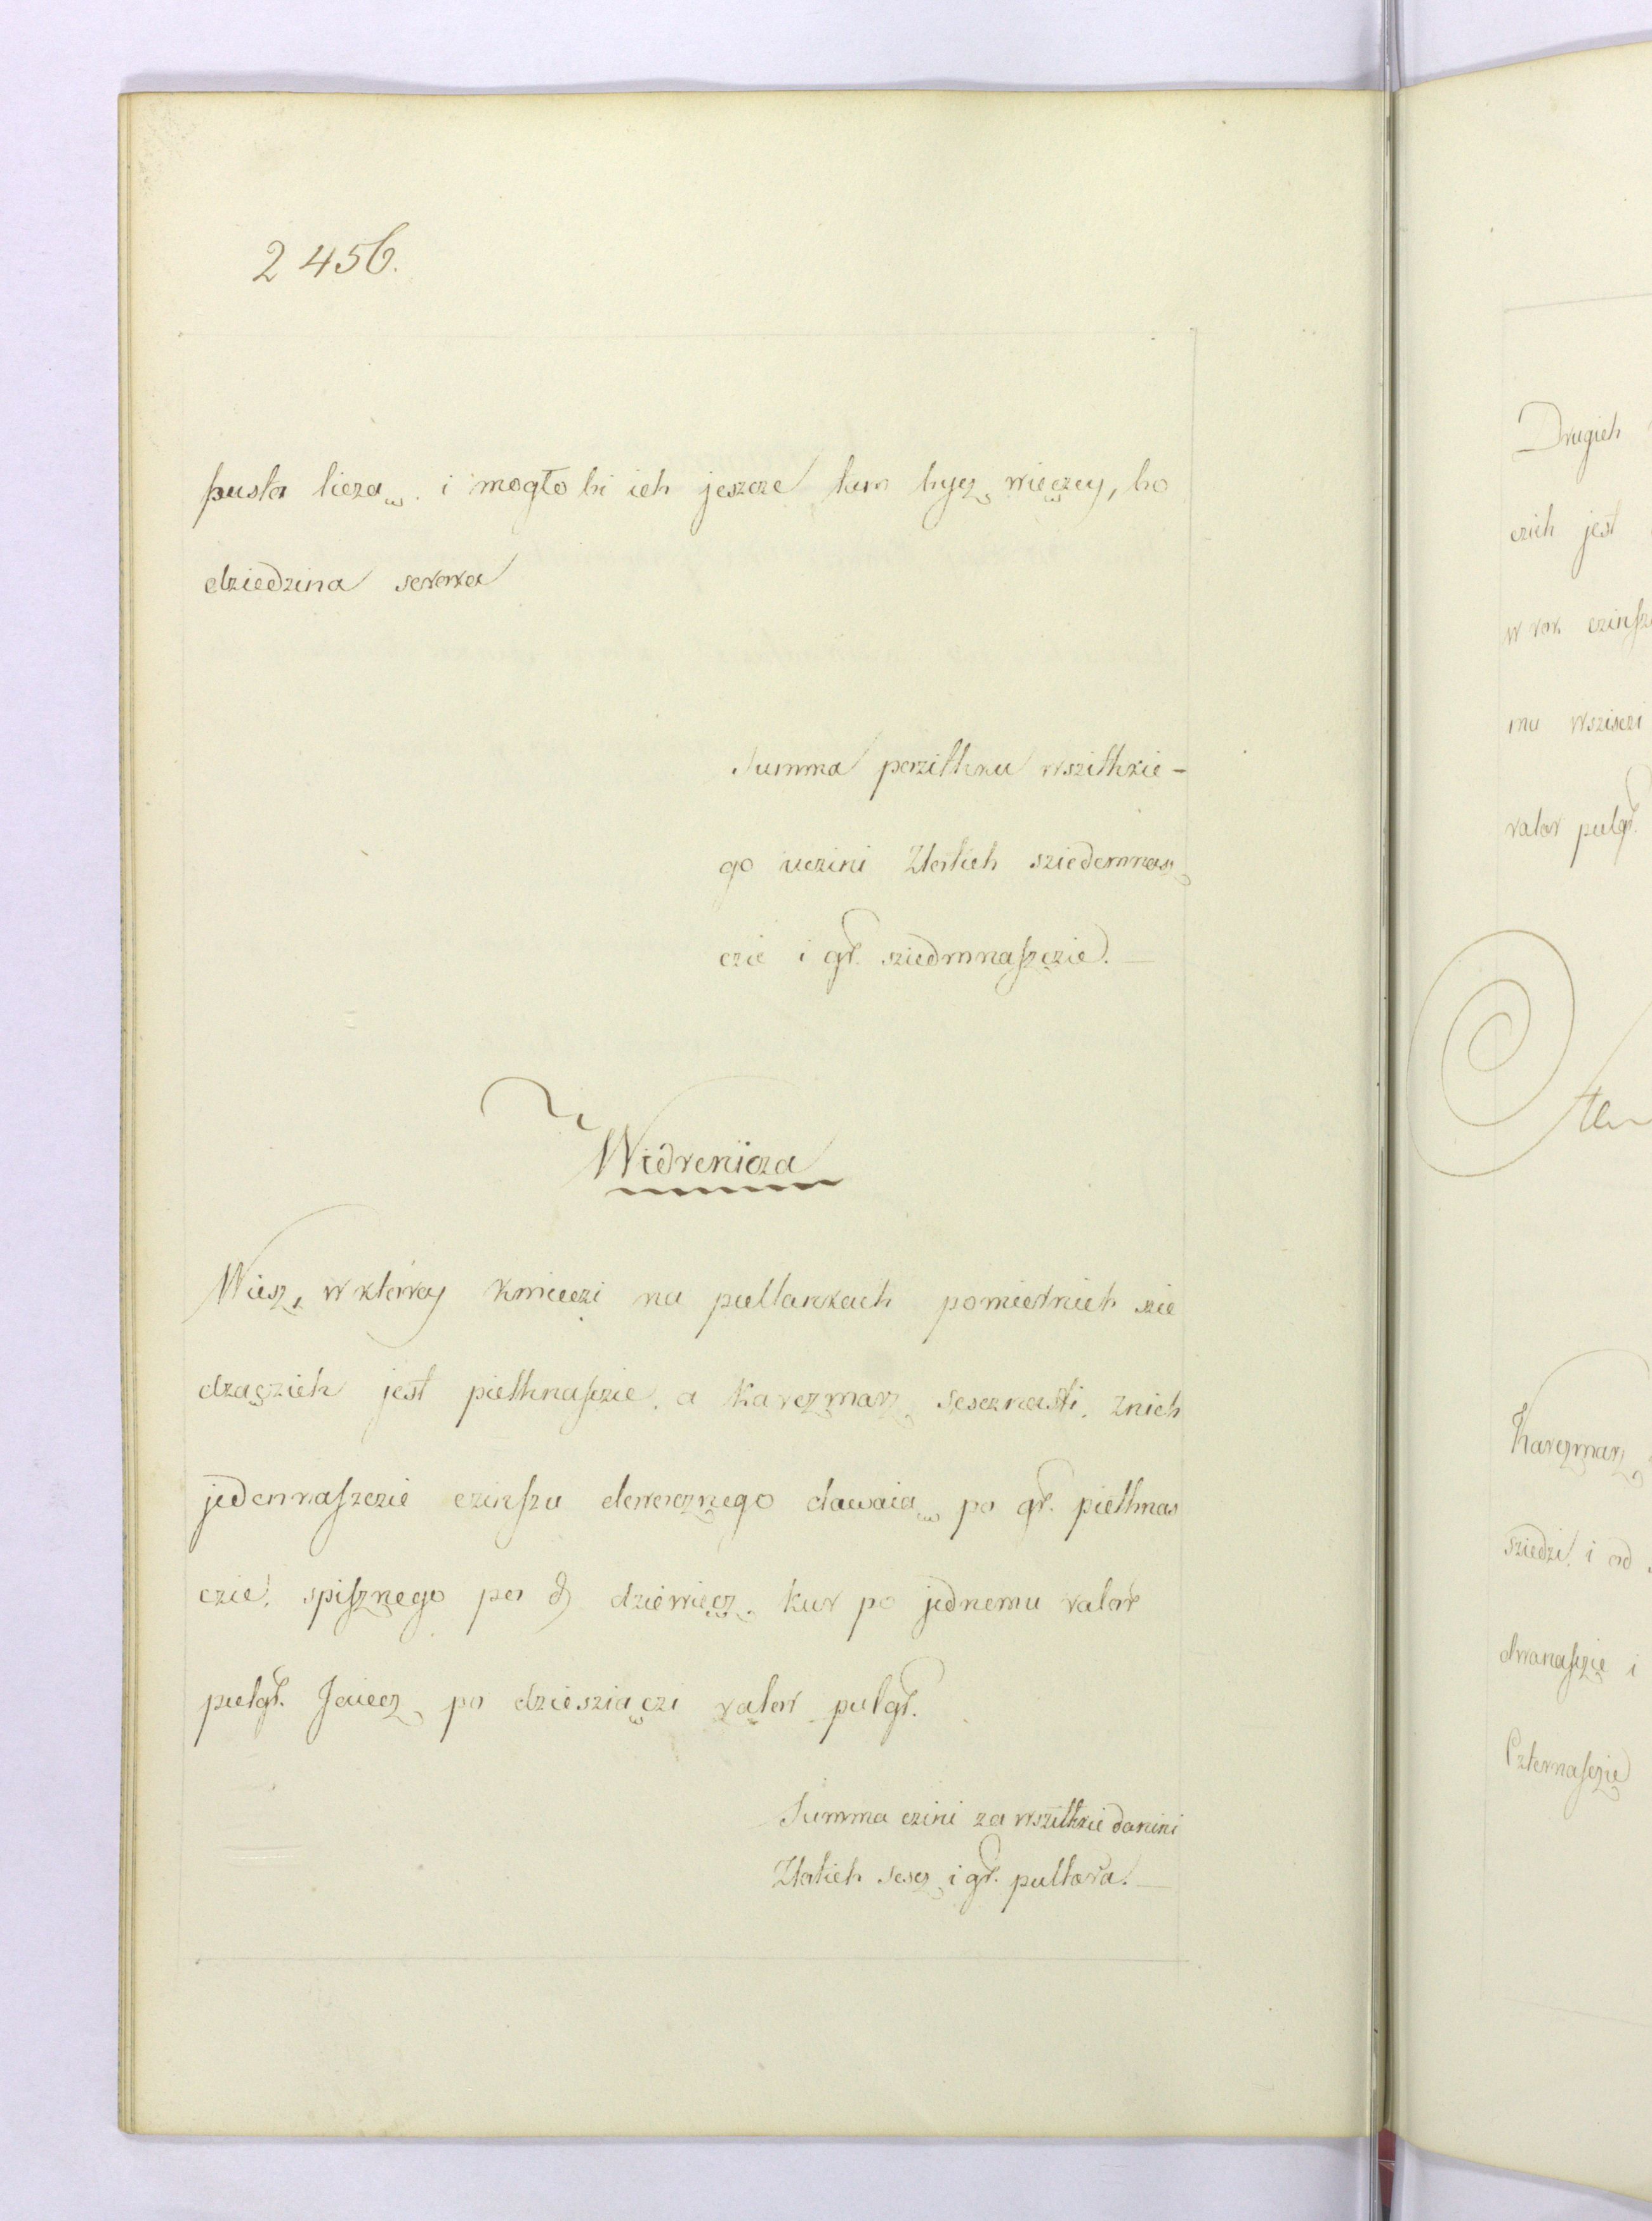 2456.
pusta licza̧ i mogło bi ich jeszcze tam bycz̨ wię̨czey, bo
dziedzina seroka
Summa pozithku wszithkie-
go uczini Zlotich sziedemnasz̨
czie i gr. sziedmnaszczie.
Widrenicza
Wiesz, w ktorey kmieczi na pullankach pomiernich szie
dza̧czich jest piethnasczie, a Karczmarz̨ szesznasti, z nich
jedennaszczie czinszu dorocznego dawaia̧ po gr. piethnas
czie, spisznego po ₰ dziewięcz, kur po jednemu valor
pulgr. Jaiecz̨ po dzieszia̧czi valor pulgr.
Summa czini za wszithkie danini
Zlotich sescz̨ i gr. pultora.
Drugich
czich jest
w rok czinszu
mu wszisczi
valor pulgr.
Karczmarz̨
sziedzi, i od
dwanasczie i
Czternasczie